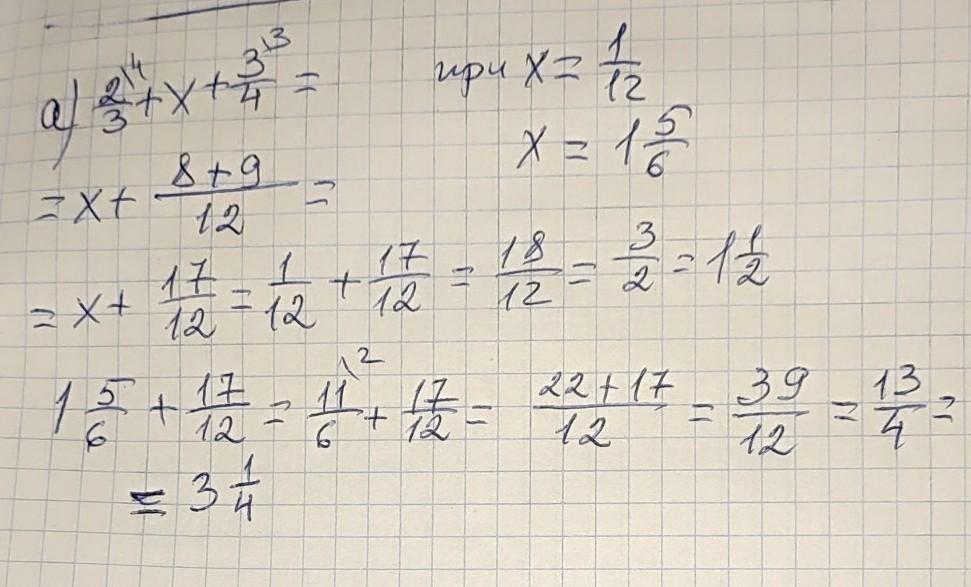 а) 2/3\4 + x + 3/4\3 = при x = 1/12
= x + (8+9)/12 = x = 1 5/6
= x + 17/12 = 1/12 + 17/12 = 18/12 = 3/2 = 1 1/2
1 5/6 + 17/12 = 11/6\2 + 17/12 = (22+17)/12 = 39/12 = 13/4 =
= 3 1/4